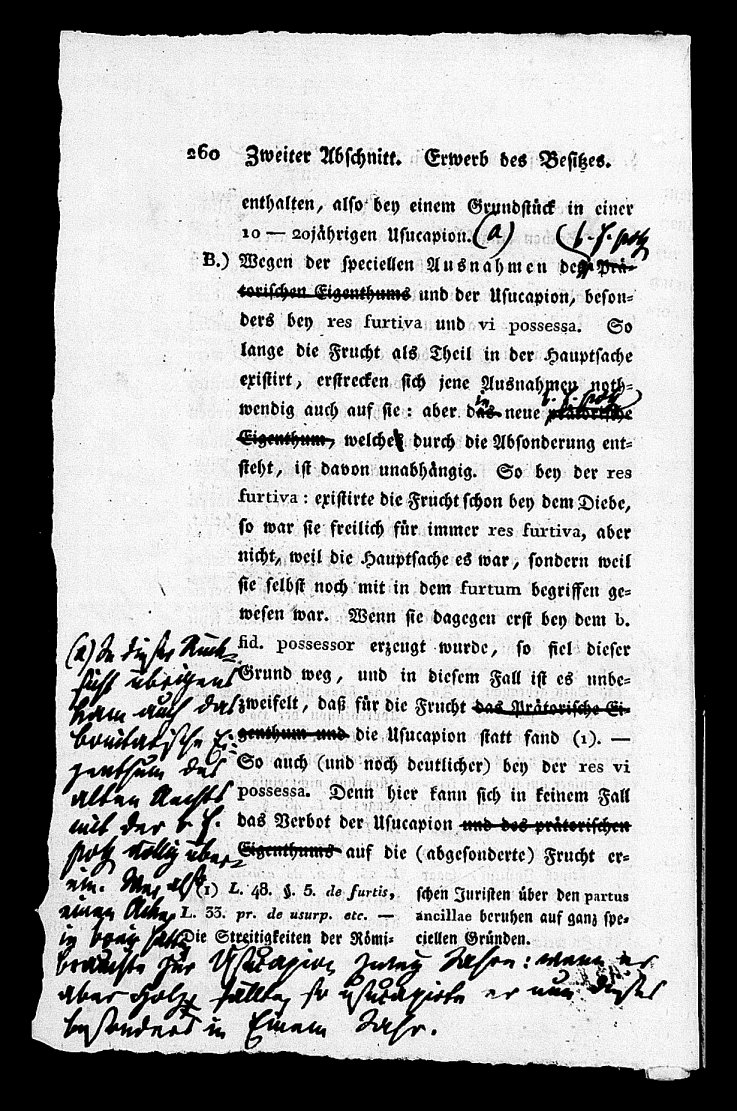 260 Zweiter Abschnitt. Erwerb des Besitzes.
enthalten, also bey einem Grundstück in einer
10 — 20jährigen Usucapion. (a) (b. f.
B.) Wegen der speciellen Ausnahmen des Prä-
torischen Eigenthums und der Usucapion, beson-
ders bey res furtiva und vi possessa. So
lange die Frucht als Theil in der Hauptsache
existirt, erstrecken sich jene Ausnahmen noth-
in b. f.
wendig auch auf sie: aber das neue prätorische
Eigenthum, welches durch die Absonderung ent-
steht, ist davon unabhängig. So bey der res
furtiva: existirte die Frucht schon bey dem Diebe,
so war sie freilich für immer res furtiva, aber
nicht, weil die Hauptsache es war, sondern weil
sie selbst noch mit in dem furtum begriffen ge-
wesen war. Wenn sie dagegen erst bey dem b.
fid. possessor erzeugt wurde, so fiel dieser
Grund weg, und in diesem Fall ist es unbe-
zweifelt, daß für die Frucht das Prätorische Ei-
genthum und die Usucapion statt fand (1). —
So auch (und noch deutlicher) bey der res vi
possessa. Denn hier kann sich in keinem Fall
das Verbot der Usucapion und des prätorischen
Eigenthums auf die (abgesonderte) Frucht er-
(1) L. 48. §. 5. de furtis,
L. 33. pr. de usurp. etc. —
Die Streitigkeiten der Römi-
schen Juristen über den partus
ancillae beruhen auf ganz spe-
ciellen Gründen.
(a) In dieser Rück-
sicht übrigens
kam auch das
bonitarische Ei-
genthum des
alten Rechts
mit der b. f.
völlig über-
ein. Wer also
einen Acker
in hatte
brauchte zur Usucapion zwey Jahre: wenn er
aber Holz fällte, so usucapirte er nun dieses
besonders in Einem Jahr.